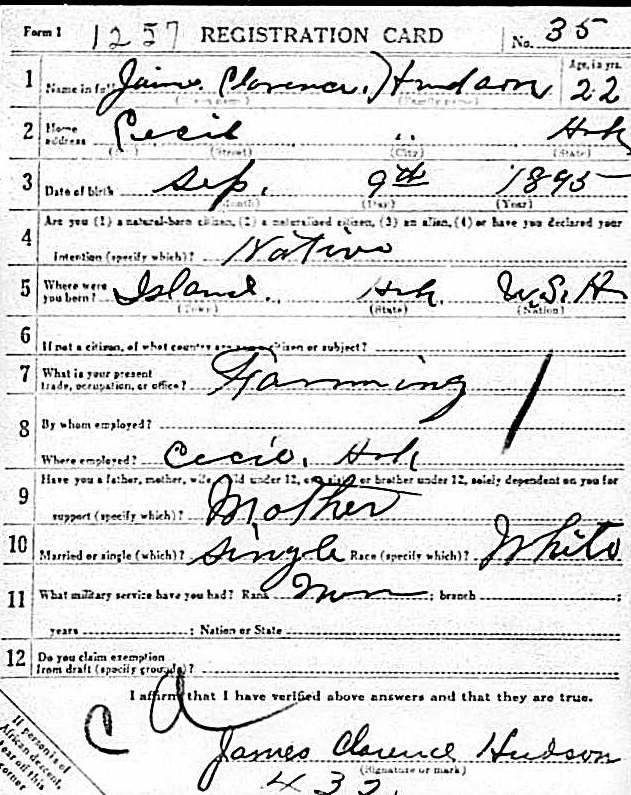 Form 1 1257 REGISTRATION CARD No. 35
1 Name in full James Clarence Hudson Age, in yrs. 22
(Given name) (Family name)
2 Home address Cecil " Ark
(No.) (Street) (City) (State)
3 Date of birth Sep. 9th 1895
(Month) (Day) (Year)
4 Are you (1) a natural-born citizen, (2) a naturalized citizen, (3) an alien, (4) or have you declared your
intention (specify which)? Native
5 Where were you born? Island Ark. U.S.A
(Town) (State) (Nation)
6 If not a citizen, of what country are you a citizen or subject?
7 What is your present trade, occupation, or office? Farming
8 By whom employed?
Where employed? Cecil, Ark
9 Have you a father, mother, wife, child under 12, or a sister or brother under 12, solely dependent on you for
support (specify which)? Mother
10 Married or single (which)? Single Race (specify which)? White
11 What military service have you had? Rank ; branch ;
years ; Nation or State
12 Do you claim exemption from draft (specify grounds)?
I affirm that I have verified above answers and that they are true.
James Clarence Hudson
(Signature or mark)
432.
If person is of African descent, tear off this corner